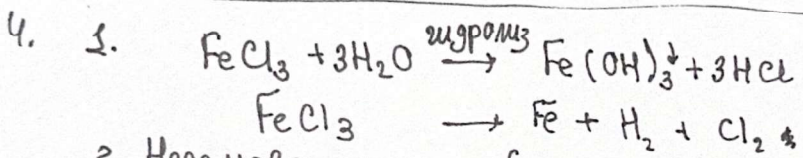 4. 1. FeCl₃ + 3H₂O гидролиз → Fe(OH)₃↓ + 3HCl
FeCl₃ → Fe + H₂ + Cl₂
2.